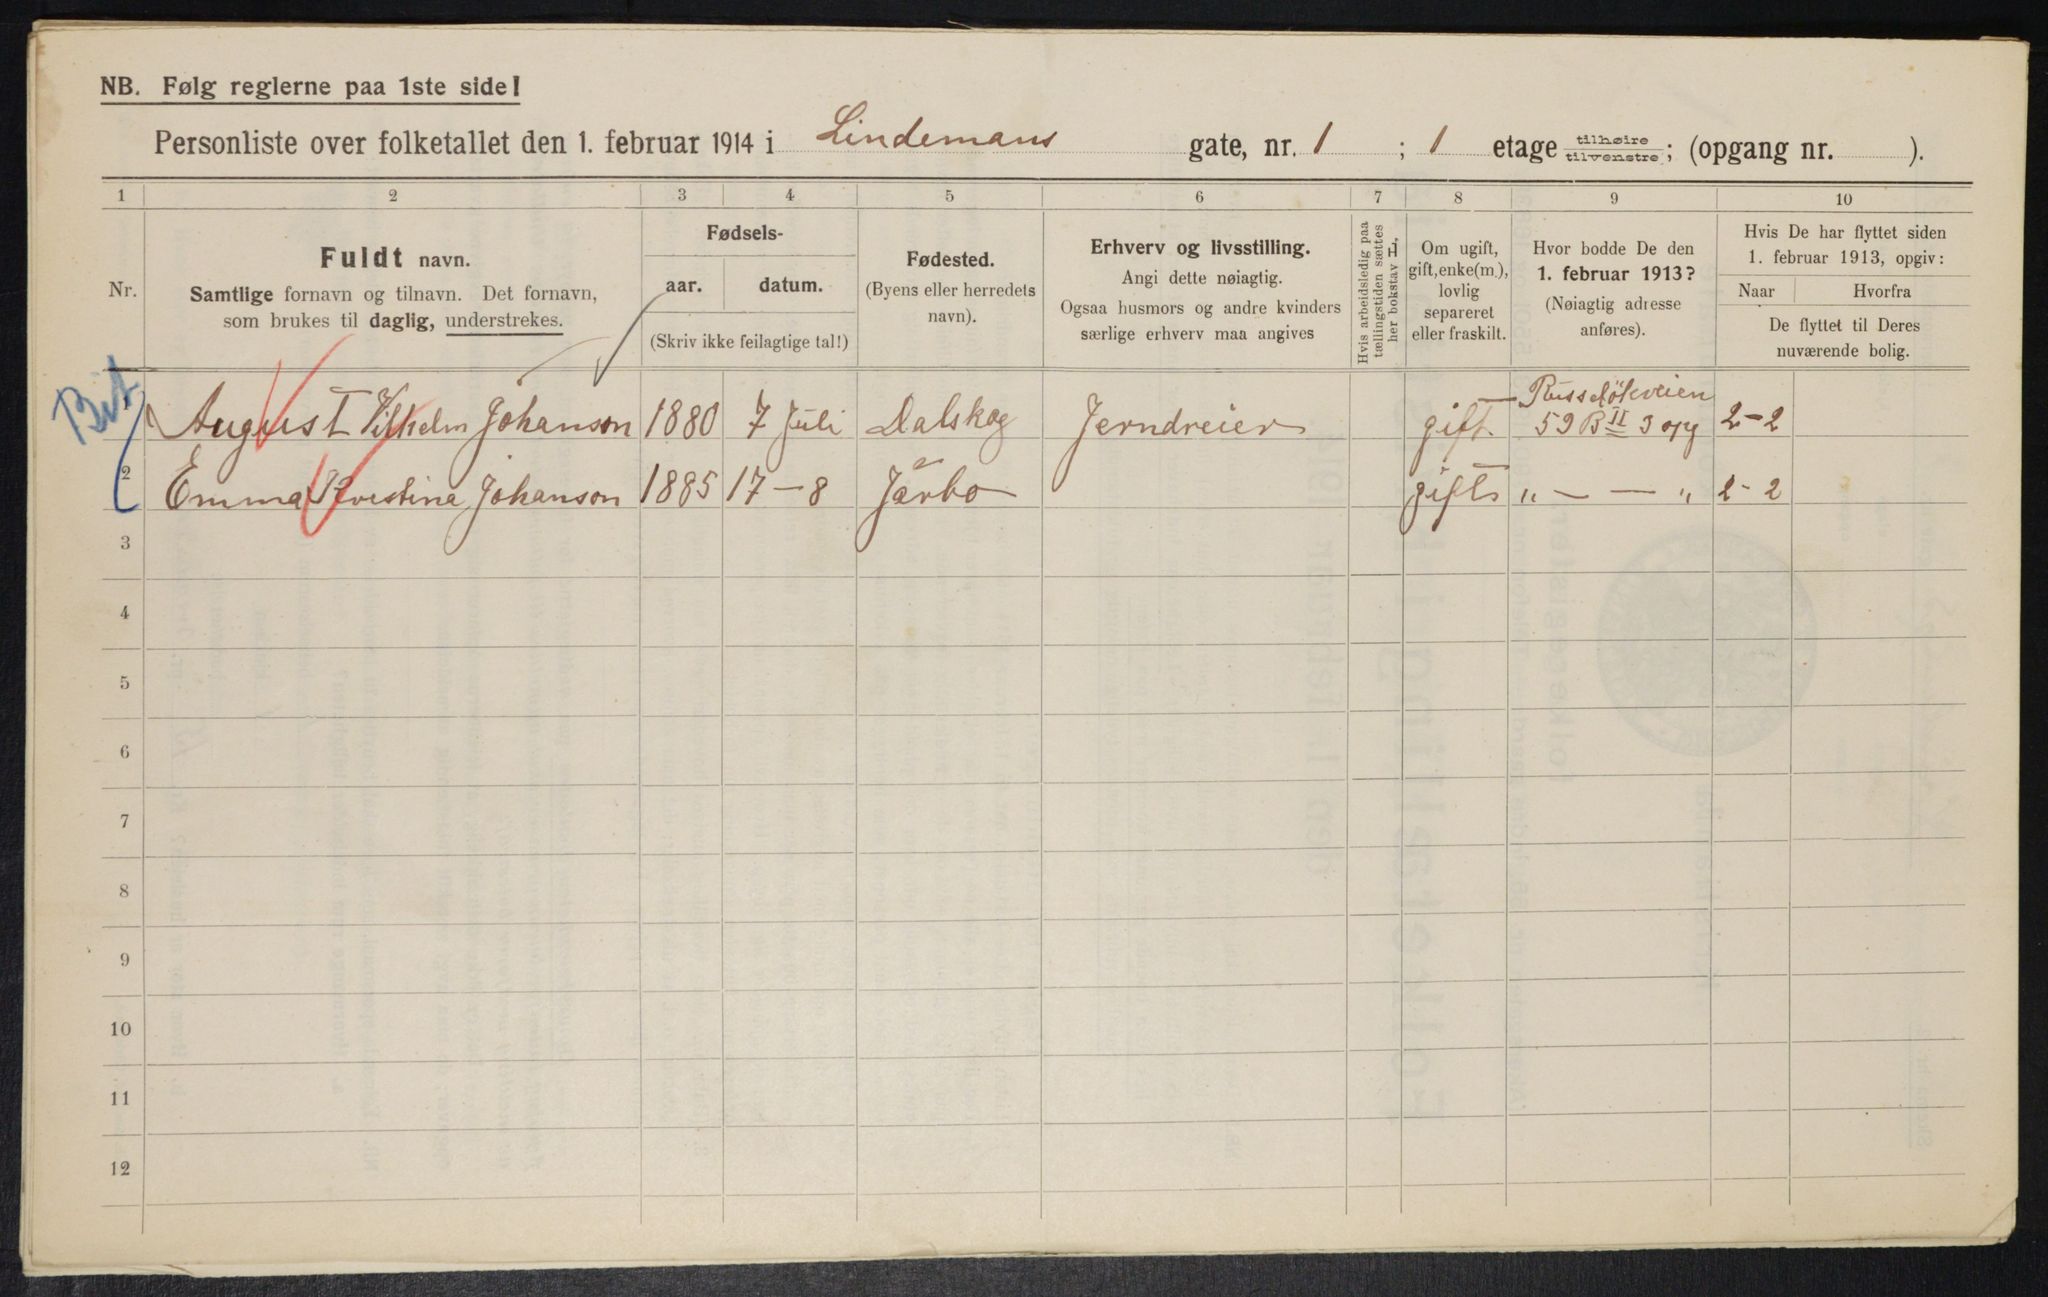 NB. Følg reglerne paa 1ste side!
Personliste over folketallet den 1. februar 1914 i Lindemans gate, nr. 1 ; 1 etage tilhøire tilvenstre; (opgang nr. ).
1 2 3 4 5 6 7 8 9 10
Nr.
Fuldt navn.
Samtlige fornavn og tilnavn. Det fornavn,
som brukes til daglig, understrekes.
Fødsels-
aar. datum.
(Skriv ikke feilagtige tal!)
Fødested.
(Byens eller herredets
navn).
Erhverv og livsstilling.
Angi dette nøiagtig.
Ogsaa husmors og andre kvinders
særlige erhverv maa angives
Hvis arbeidsledig paa
tællingstiden sættes
her bokstav L.
Om ugift,
gift, enke(m.),
lovlig
separeret
eller fraskilt.
Hvor bodde De den
1. februar 1913?
(Nøiagtig adresse
anføres).
Hvis De har flyttet siden
1. februar 1913, opgiv:
Naar Hvorfra
De flyttet til Deres
nuværende bolig.
August Vilhelm Johanson 1880 7 Juli Dalskog Jerndreier gift Russeløkveien 59 B II 3 opg 2-2
2 Emma Kristina Johanson 1885 17-8 Järbo gift „ — — „ 2-2
3
4
5
6
7
8
9
10
11
12